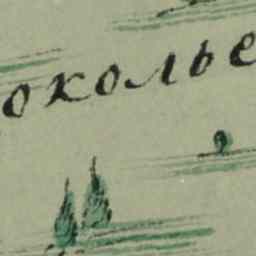 околье